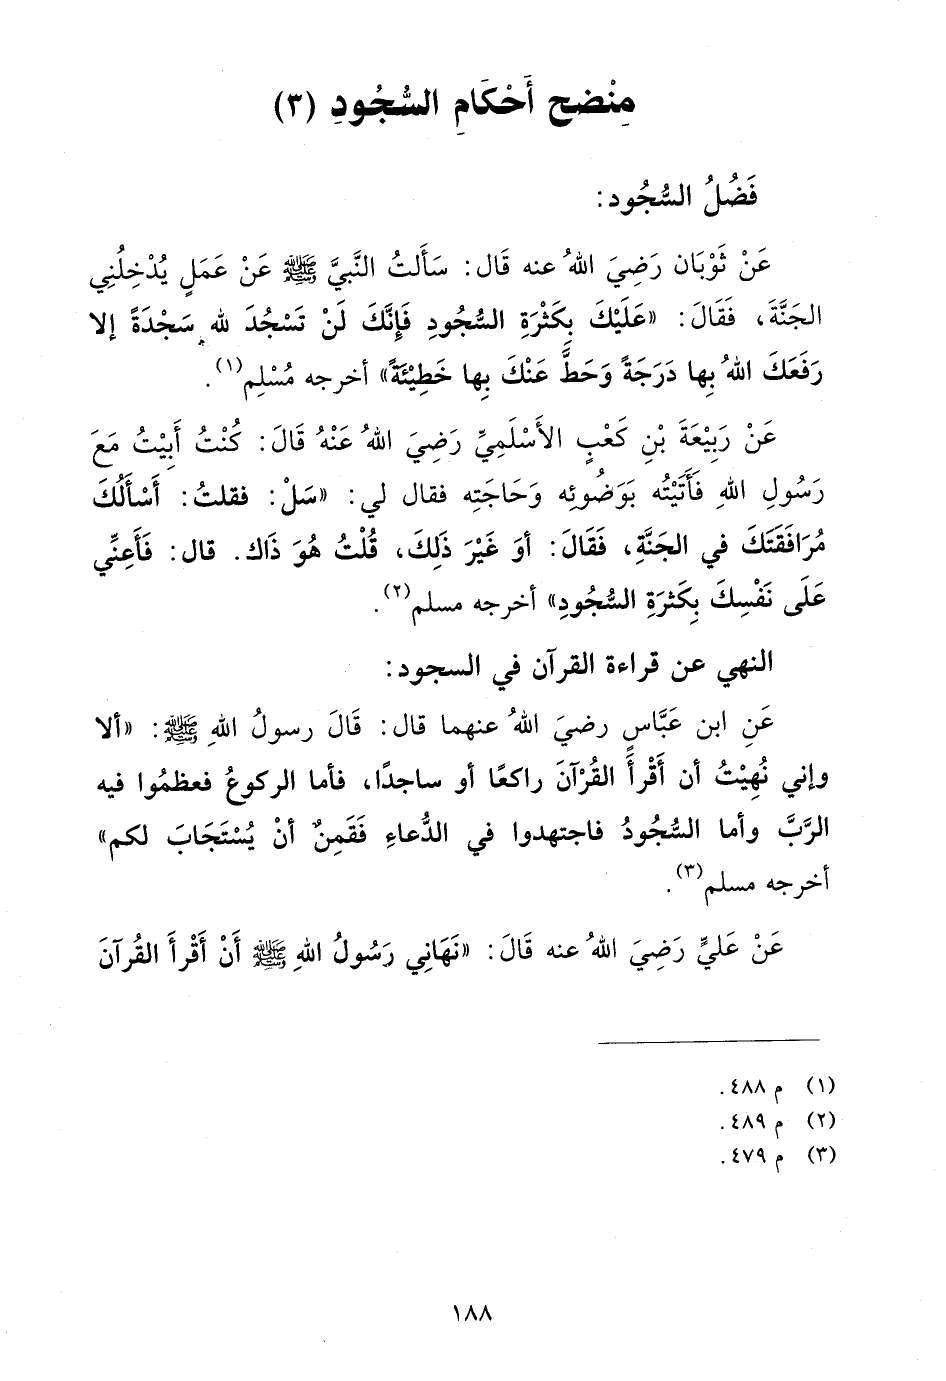 مِنْضح أَحْكَامِ السُّجُودِ (٣)
فَضْلُ السُّجُود:
عَنْ ثَوْبَان رَضِيَ اللهُ عنه قَال: سَأَلتُ النَّبيَّ ﷺ عَنْ عَمَلٍ يُدْخِلُنِي
الجَنَّةَ، فَقَالَ: «عَلَيْكَ بِكَثْرَةِ السُّجُودِ فَإِنَّكَ لَنْ تَسْجُدَ لله سَجْدَةً إلا
رَفَعَكَ اللهُ بِها دَرَجَةً وَحَطَّ عَنْكَ بِها خَطِيْئَةً» أخرجه مُسْلِم(١).
عَنْ رَبِيْعَةَ بْنِ كَعْبٍ الأَسْلَمِيِّ رَضِيَ اللهُ عَنْهُ قَالَ: كُنْتُ أَبِيْتُ مَعَ
رَسُولِ اللهِ فَأَتَيْتُه بِوَضُوئِه وَحَاجَتِه فقال لي: «سَلْ: فقلتُ: أَسْأَلُكَ
مُرَافَقَتَكَ في الجَنَّةِ، فَقَالَ: أوَ غَيْرَ ذَلِكَ، قُلْتُ هُوَ ذَاك. قال: فَأَعِنِّي
عَلَى نَفْسِكَ بِكَثرَةِ السُّجُودِ» أخرجه مسلم(٢).
النهي عن قراءة القرآن في السجود:
عَنِ ابن عَبَّاسٍ رضيَ اللهُ عنهما قال: قَالَ رسولُ اللهِ ﷺ: «ألا
وإني نُهِيْتُ أن أَقْرأَ القُرْآنَ راكعًا أو ساجدًا، فأما الركوعُ فعظمُوا فيه
الرَّبَّ وأما السُّجُودُ فاجتهدوا في الدُّعاءِ فَقَمِنٌ أنْ يُسْتَجَابَ لكم»
أخرجه مسلم(٣).
عَنْ عَليٍّ رَضِيَ اللهُ عنه قَالَ: «نَهَانِي رَسُولُ اللهِ ﷺ أَنْ أَقْرأَ القُرآنَ
(١) م ٤٨٨.
(٢) م ٤٨٩.
(٣) م ٤٧٩.
١٨٨